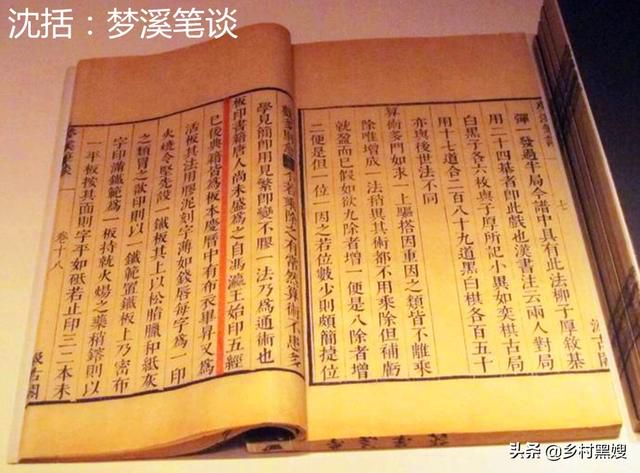 沈括：梦溪笔谈
七
汲古閣
彈 發過半局今譜中具有此法柳子厚敘棊
用二十四棊者即此戲也漢書注云兩人對局
白黑子各六枚與子厚所記小異如奕棋古局
用十七道合二百八十九道黑白棋各百五十
亦與後世法不同
算術多門如求一上驅搭因重因之類皆不離乘
除惟增成一法稍異其術都不用乘除但補虧
就盈而已假如欲九除者增一便是八除者增
二便是但一位一因之若位數少則頗簡捷位
不若乘除之有常然算術不患多
學見簡即用見繁即變不膠一法乃爲通術也
板印書籍唐人尚未盛爲之自馮瀛王始印五經
已後典籍皆爲板本慶曆中有布衣畢昇又爲
活板其法用膠泥刻字薄如錢唇每字爲一印
火燒令堅先設一鐵板其上以松脂臘和紙灰
之類冒之欲印則以一鐵範置鐵板上乃密布
字印滿鐵範爲一板持就火煬之藥稍鎔則以
一平板按其面則字平如砥若止印三二本未
夢溪筆談
卷十八
汲古閣
头条 @乡村黑嫂